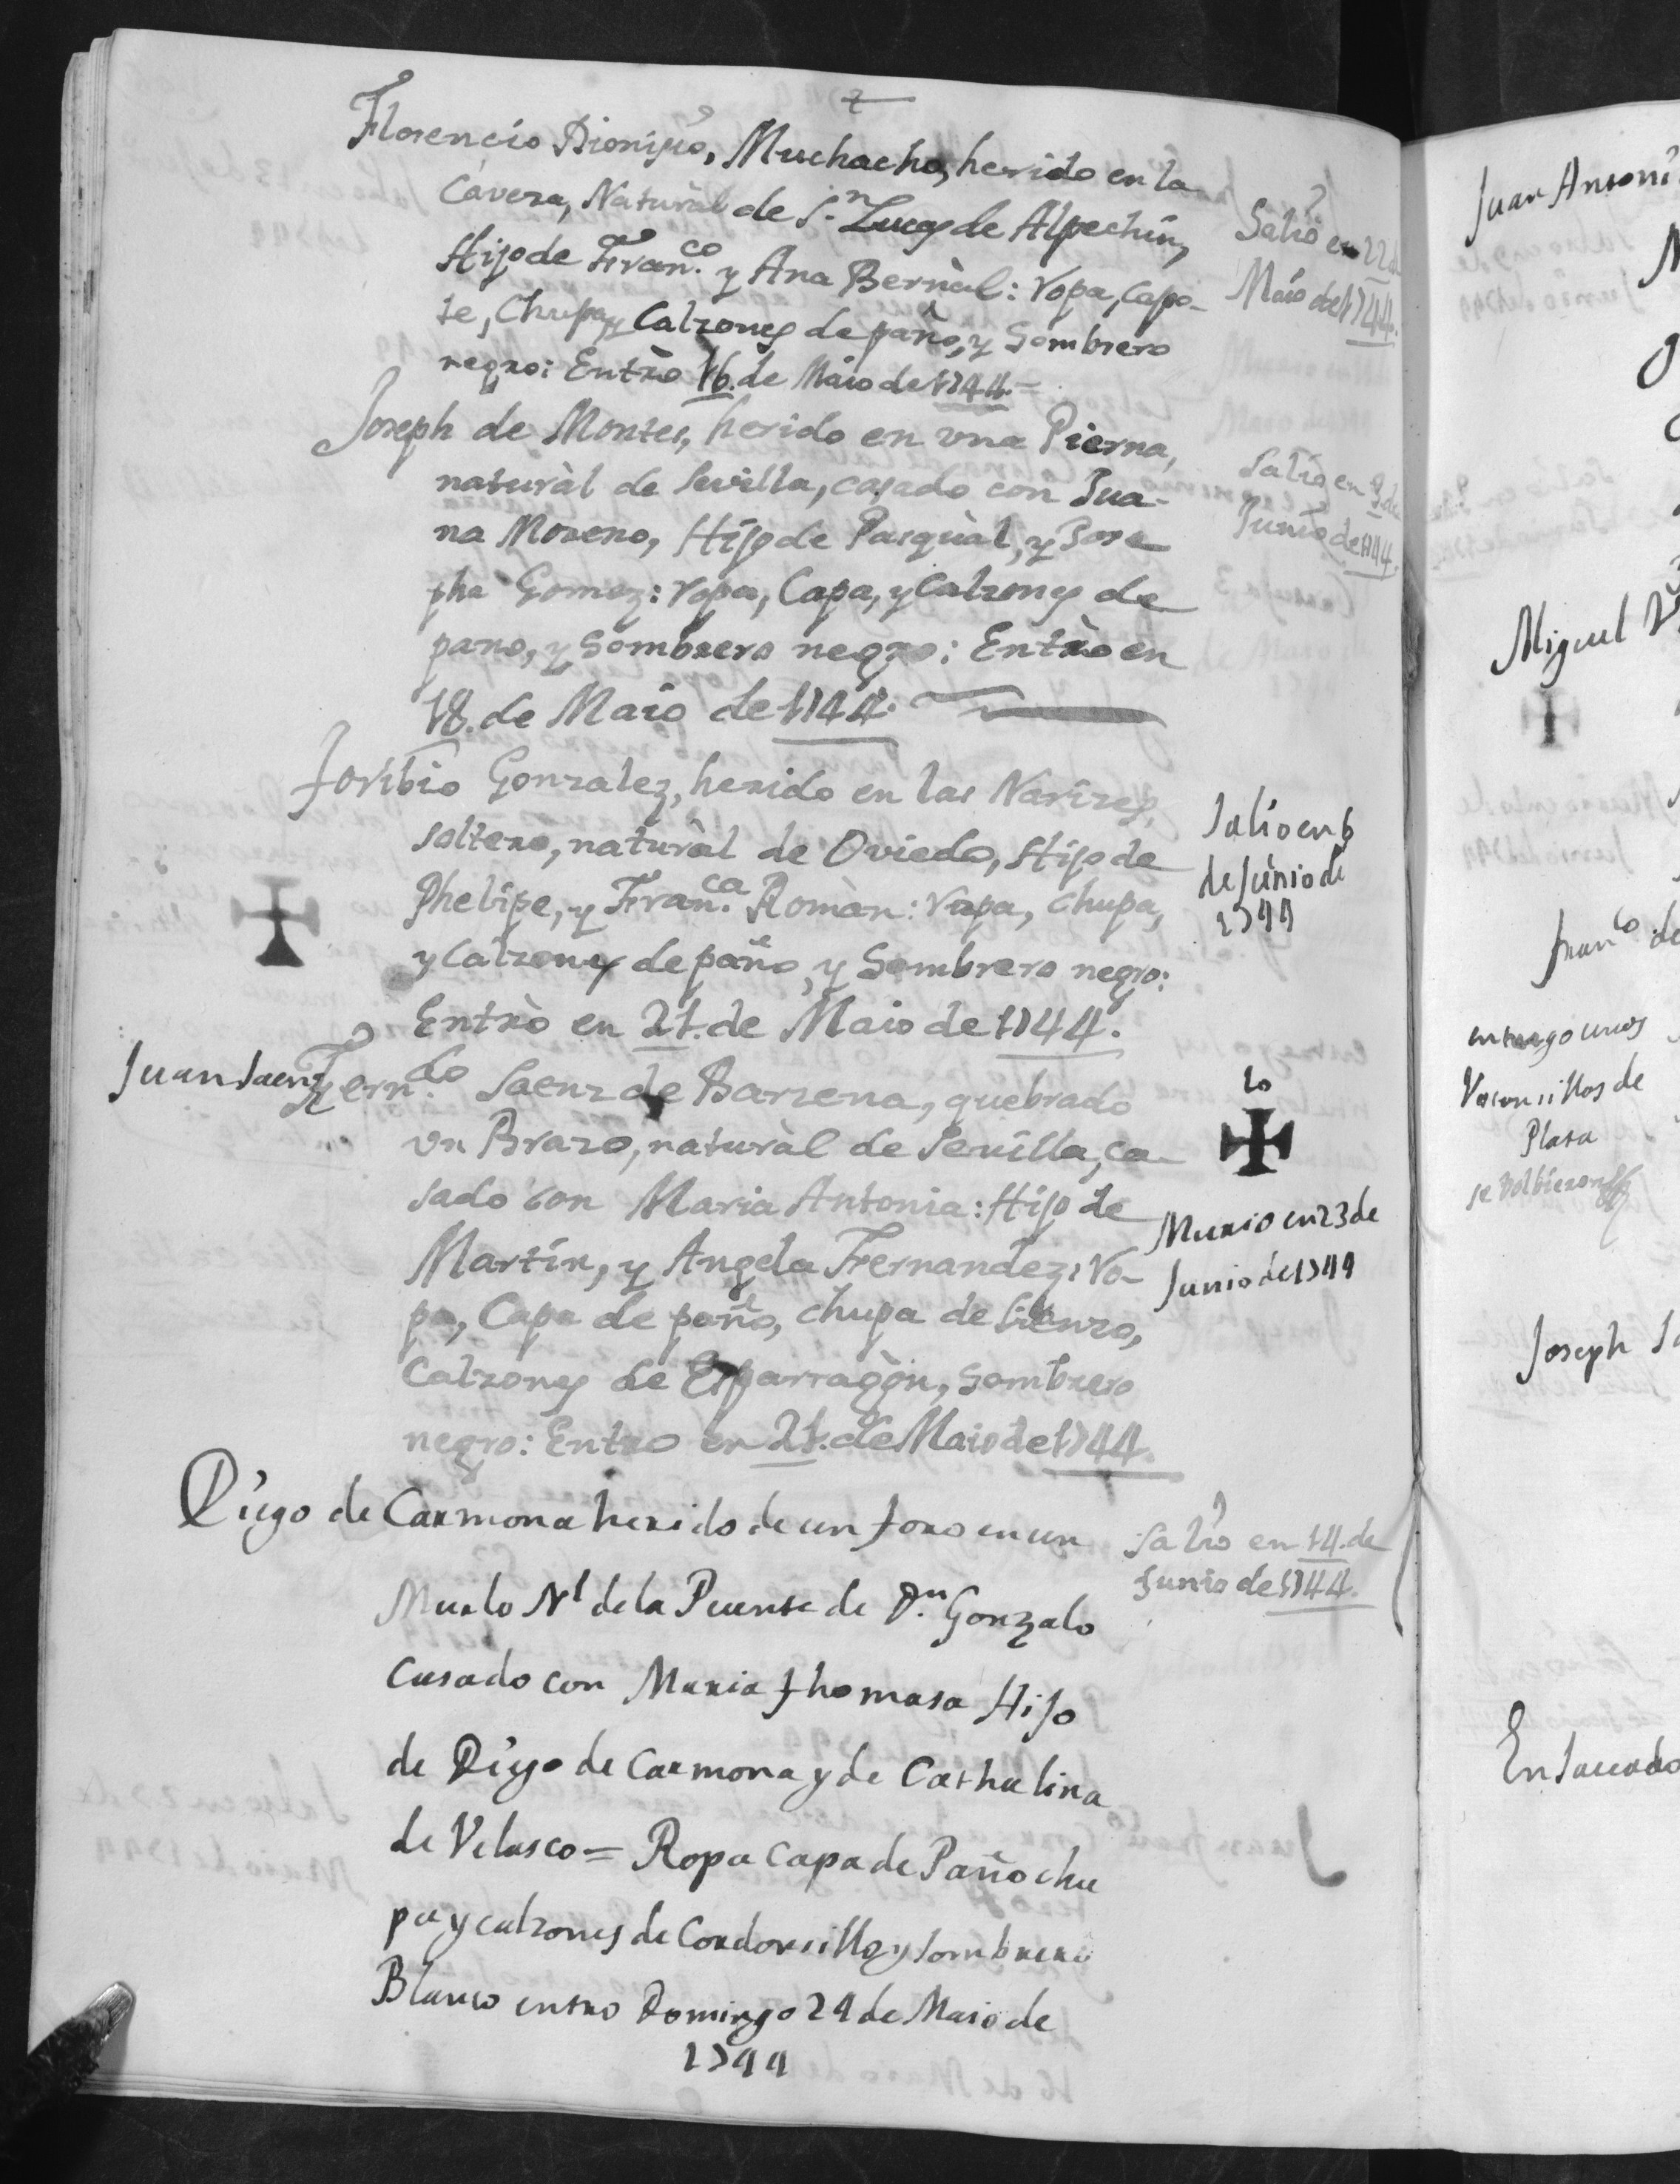 Florencio Dionisio, Muchacho, herido en la
Cavera, Naturàl de S.n Lucas de Alpechin,
Hijo de Fran.co y Ana Bernàl: ropa, capo-
te, Chupa, y Calzones de paño, y Sombrero
negro: Entrò 16. de Maio de 1744.=
Salio en 22 de
Maio de 1744.
Joseph de Montes, herido en una Pierna,
naturàl de Sevilla, casado con Jua-
na Moreno, Hijo de Pasquàl, y Jose
pha Gomez: ropa, Capa, y Calzones de
pano, y Sombrero negro: Entrò en
18. de Maio de 1744.
Salio en 9 de
Junio de 1744.
Joribio Gonzalez, herido en las Narizes,
soltero, naturàl de Oviedo, Hijo de
Phelipe, y Fran.ca Romàn: ropa, chupa,
y Calzones de paño, y Sombrero negro:
Entrò en 21. de Maio de 1744.
Salio en 6
de Junio de
1744
Juan Saenz
Fern.do Saenz de Barzena, quebrado
vn Brazo, naturàl de Sevilla, ca-
sado con Maria Antonia: Hijo de
Martin, y Angela Fernandez: ro-
pa, Capa de paño, chupa de lienzo,
Calzones de Esparragòn, sombrero
negro: Entro en 21. de Maio de 1744.
10
Murio en 23 de
Junio de 1744
Diego de Carmona herido de un toro en un
Muslo Nl de la Puente de D.n Gonzalo
Casado con Maria thomasa Hijo
de Diego de Carmona y de Cathalina
de Velasco = Ropa Capa de Paño chu
pa y calzones de Cordonsillo y sombrero
Blanco entro Domingo 24 de Maio de
1744
Salio en 14. de
Junio de 1744.
Juan Antoni
Miguel
Franco de
entrego unos
Vaconsillos de
Plata
se volbieron
Joseph
Ensacado